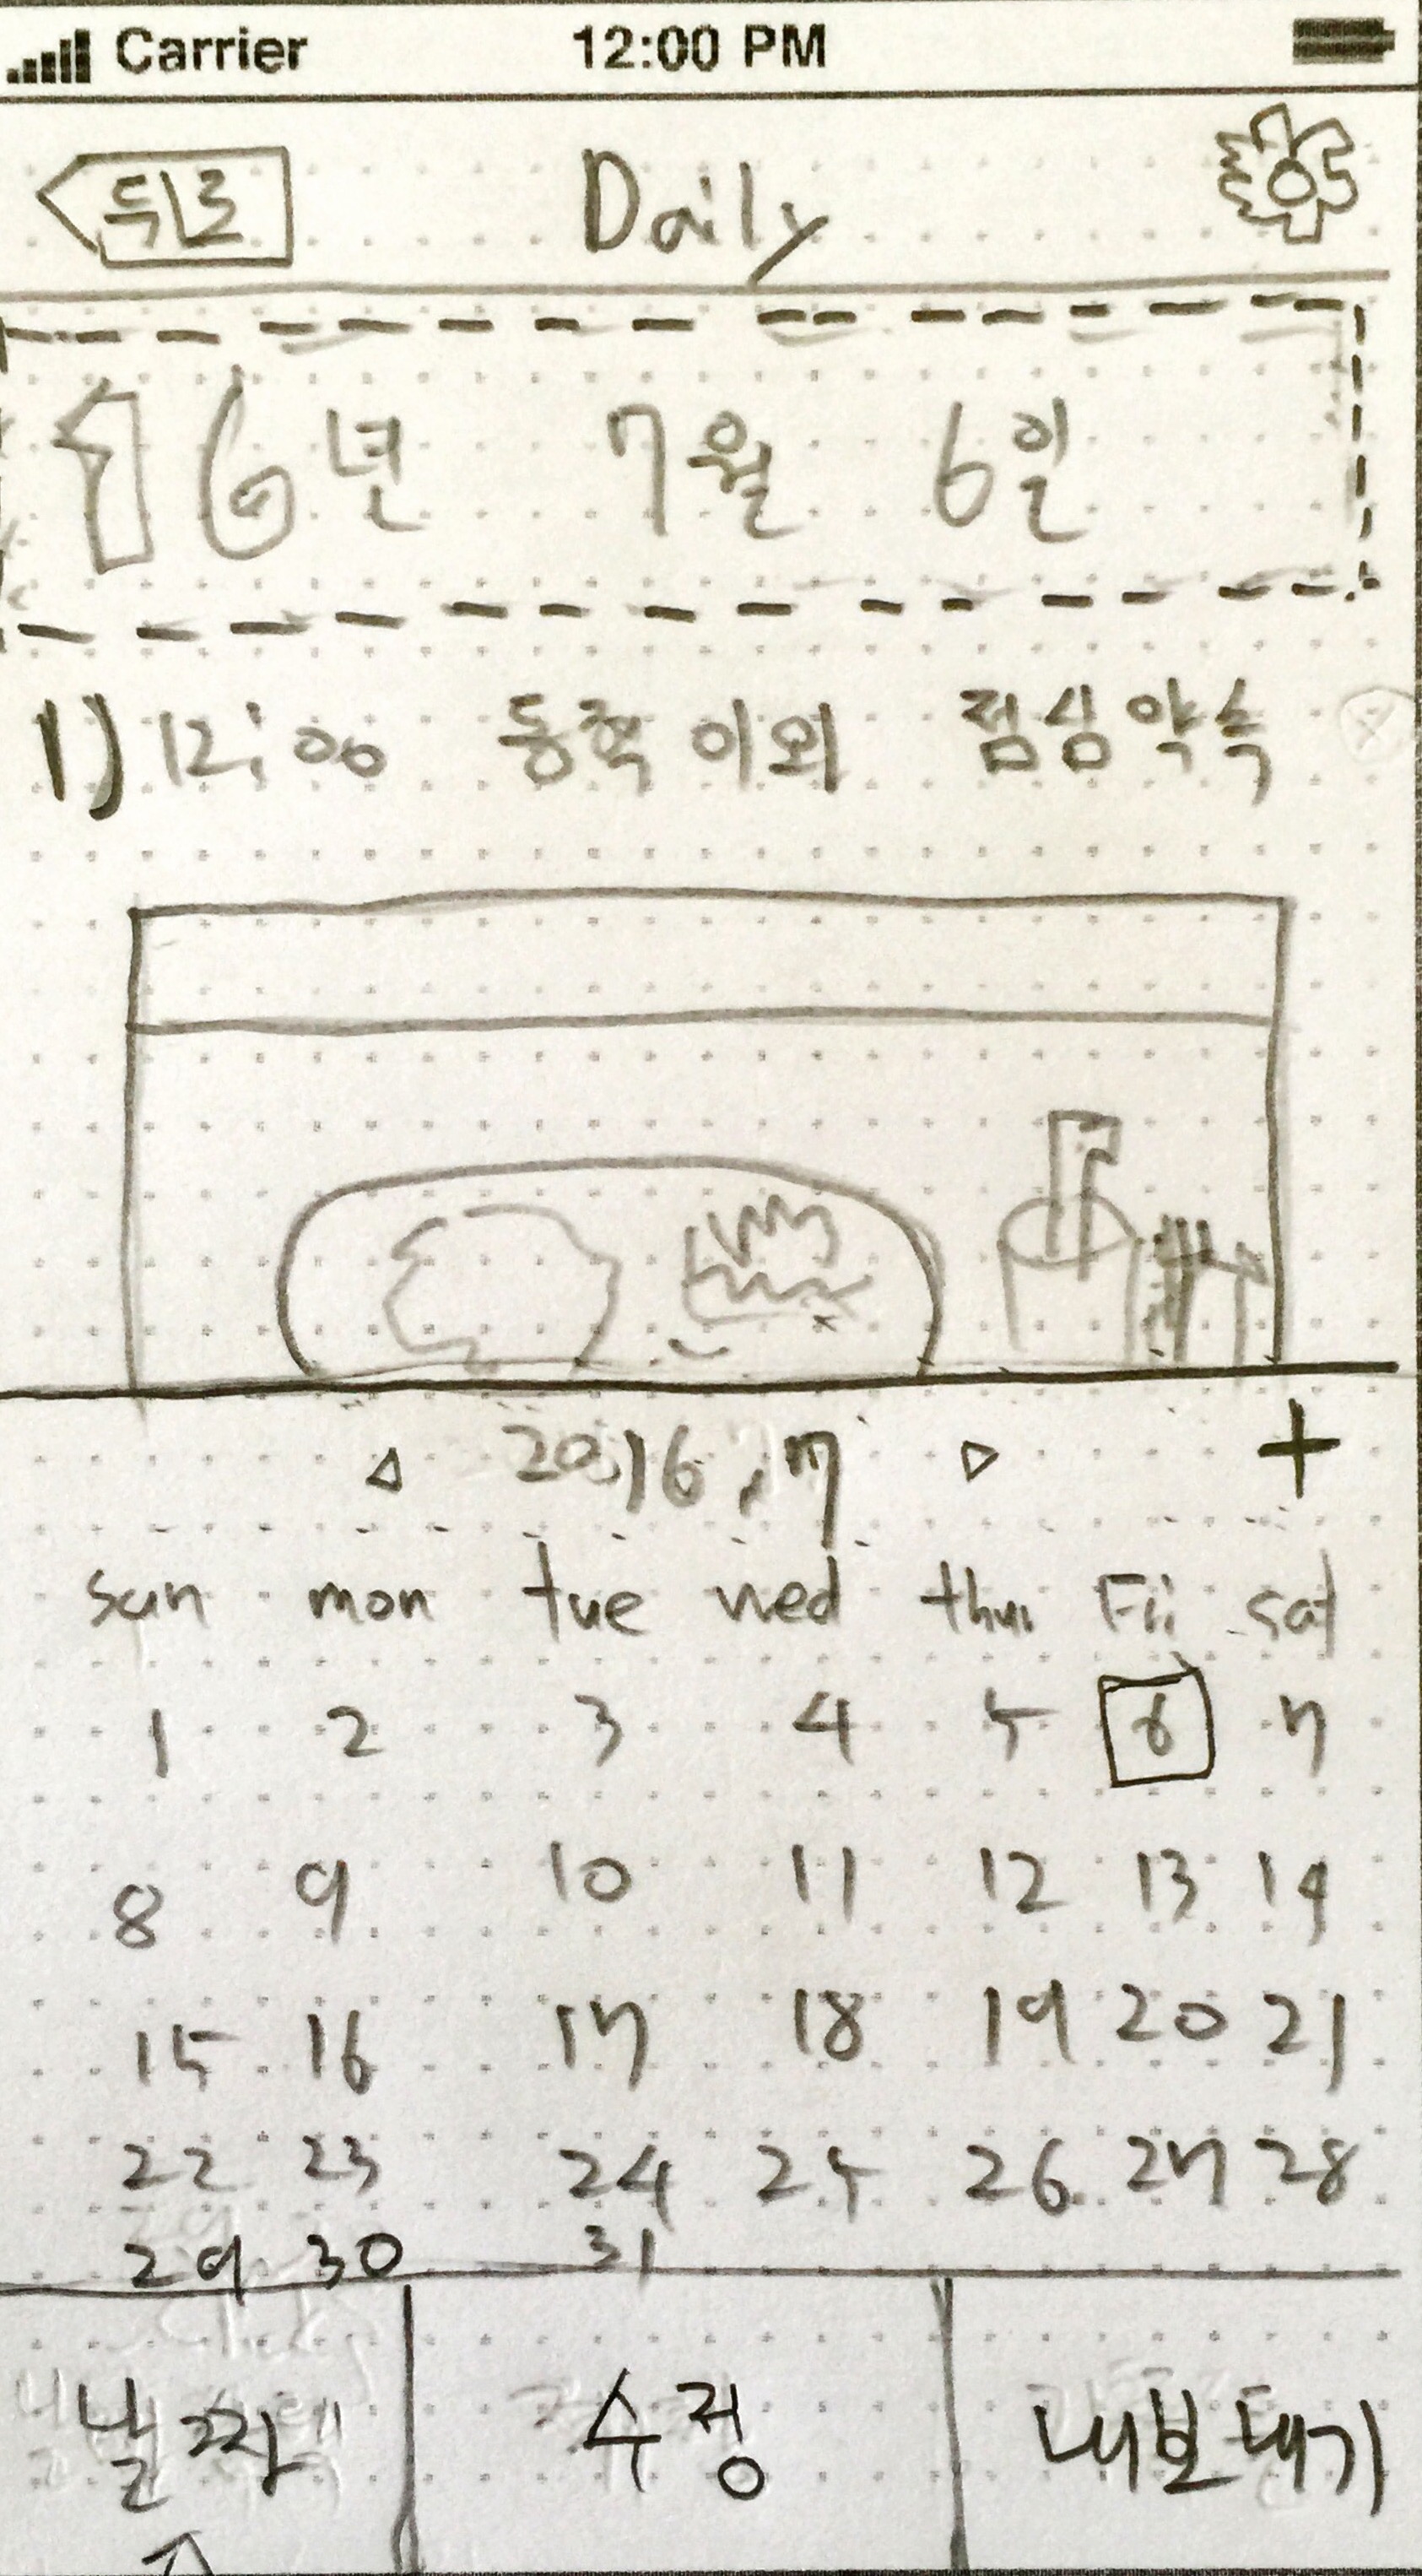 Carrier 12:00 PM
뒤로 Daily
16년 7월 6일
1) 12:00 동창 이외 점심약속
2016.7 +
sun mon tue wed thu Fri sat
1 2 3 4 5 6 7
8 9 10 11 12 13 14
15 16 17 18 19 20 21
22 23 24 25 26 27 28
29 30 31
날짜 수정 내보내기